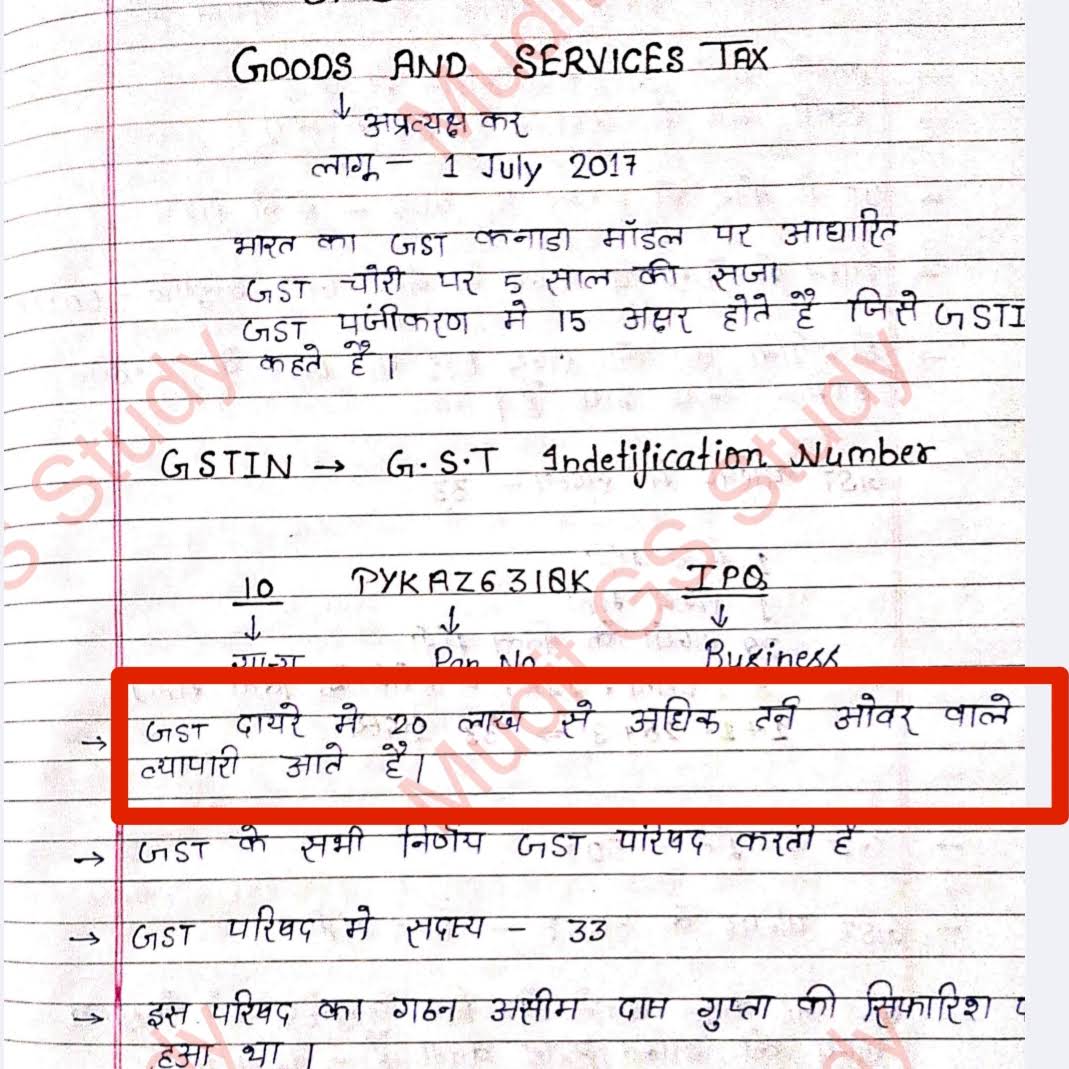 GOODS AND SERVICES TAX
↓ अप्रत्यक्ष कर
लागू – 1 July 2017
भारत का GST कनाडा मॉडल पर आधारित
GST चोरी पर 5 साल की सजा
GST पंजीकरण मे 15 अक्षर होते है जिसे GSTI
कहते है।
GSTIN → G.S.T Indetification Number
10 PYKAZ6318K IPQ
↓ ↓ ↓
राज्य Pan No Business
→ GST दायरे मे 20 लाख से अधिक टर्न ओवर वाले
व्यापारी आते है।
→ GST के सभी निर्णय GST परिषद करती है
→ GST परिषद मे सदस्य – 33
→ इस परिषद का गठन असीम दास गुप्ता की सिफारिश
हुआ था।
Mudit GS Study